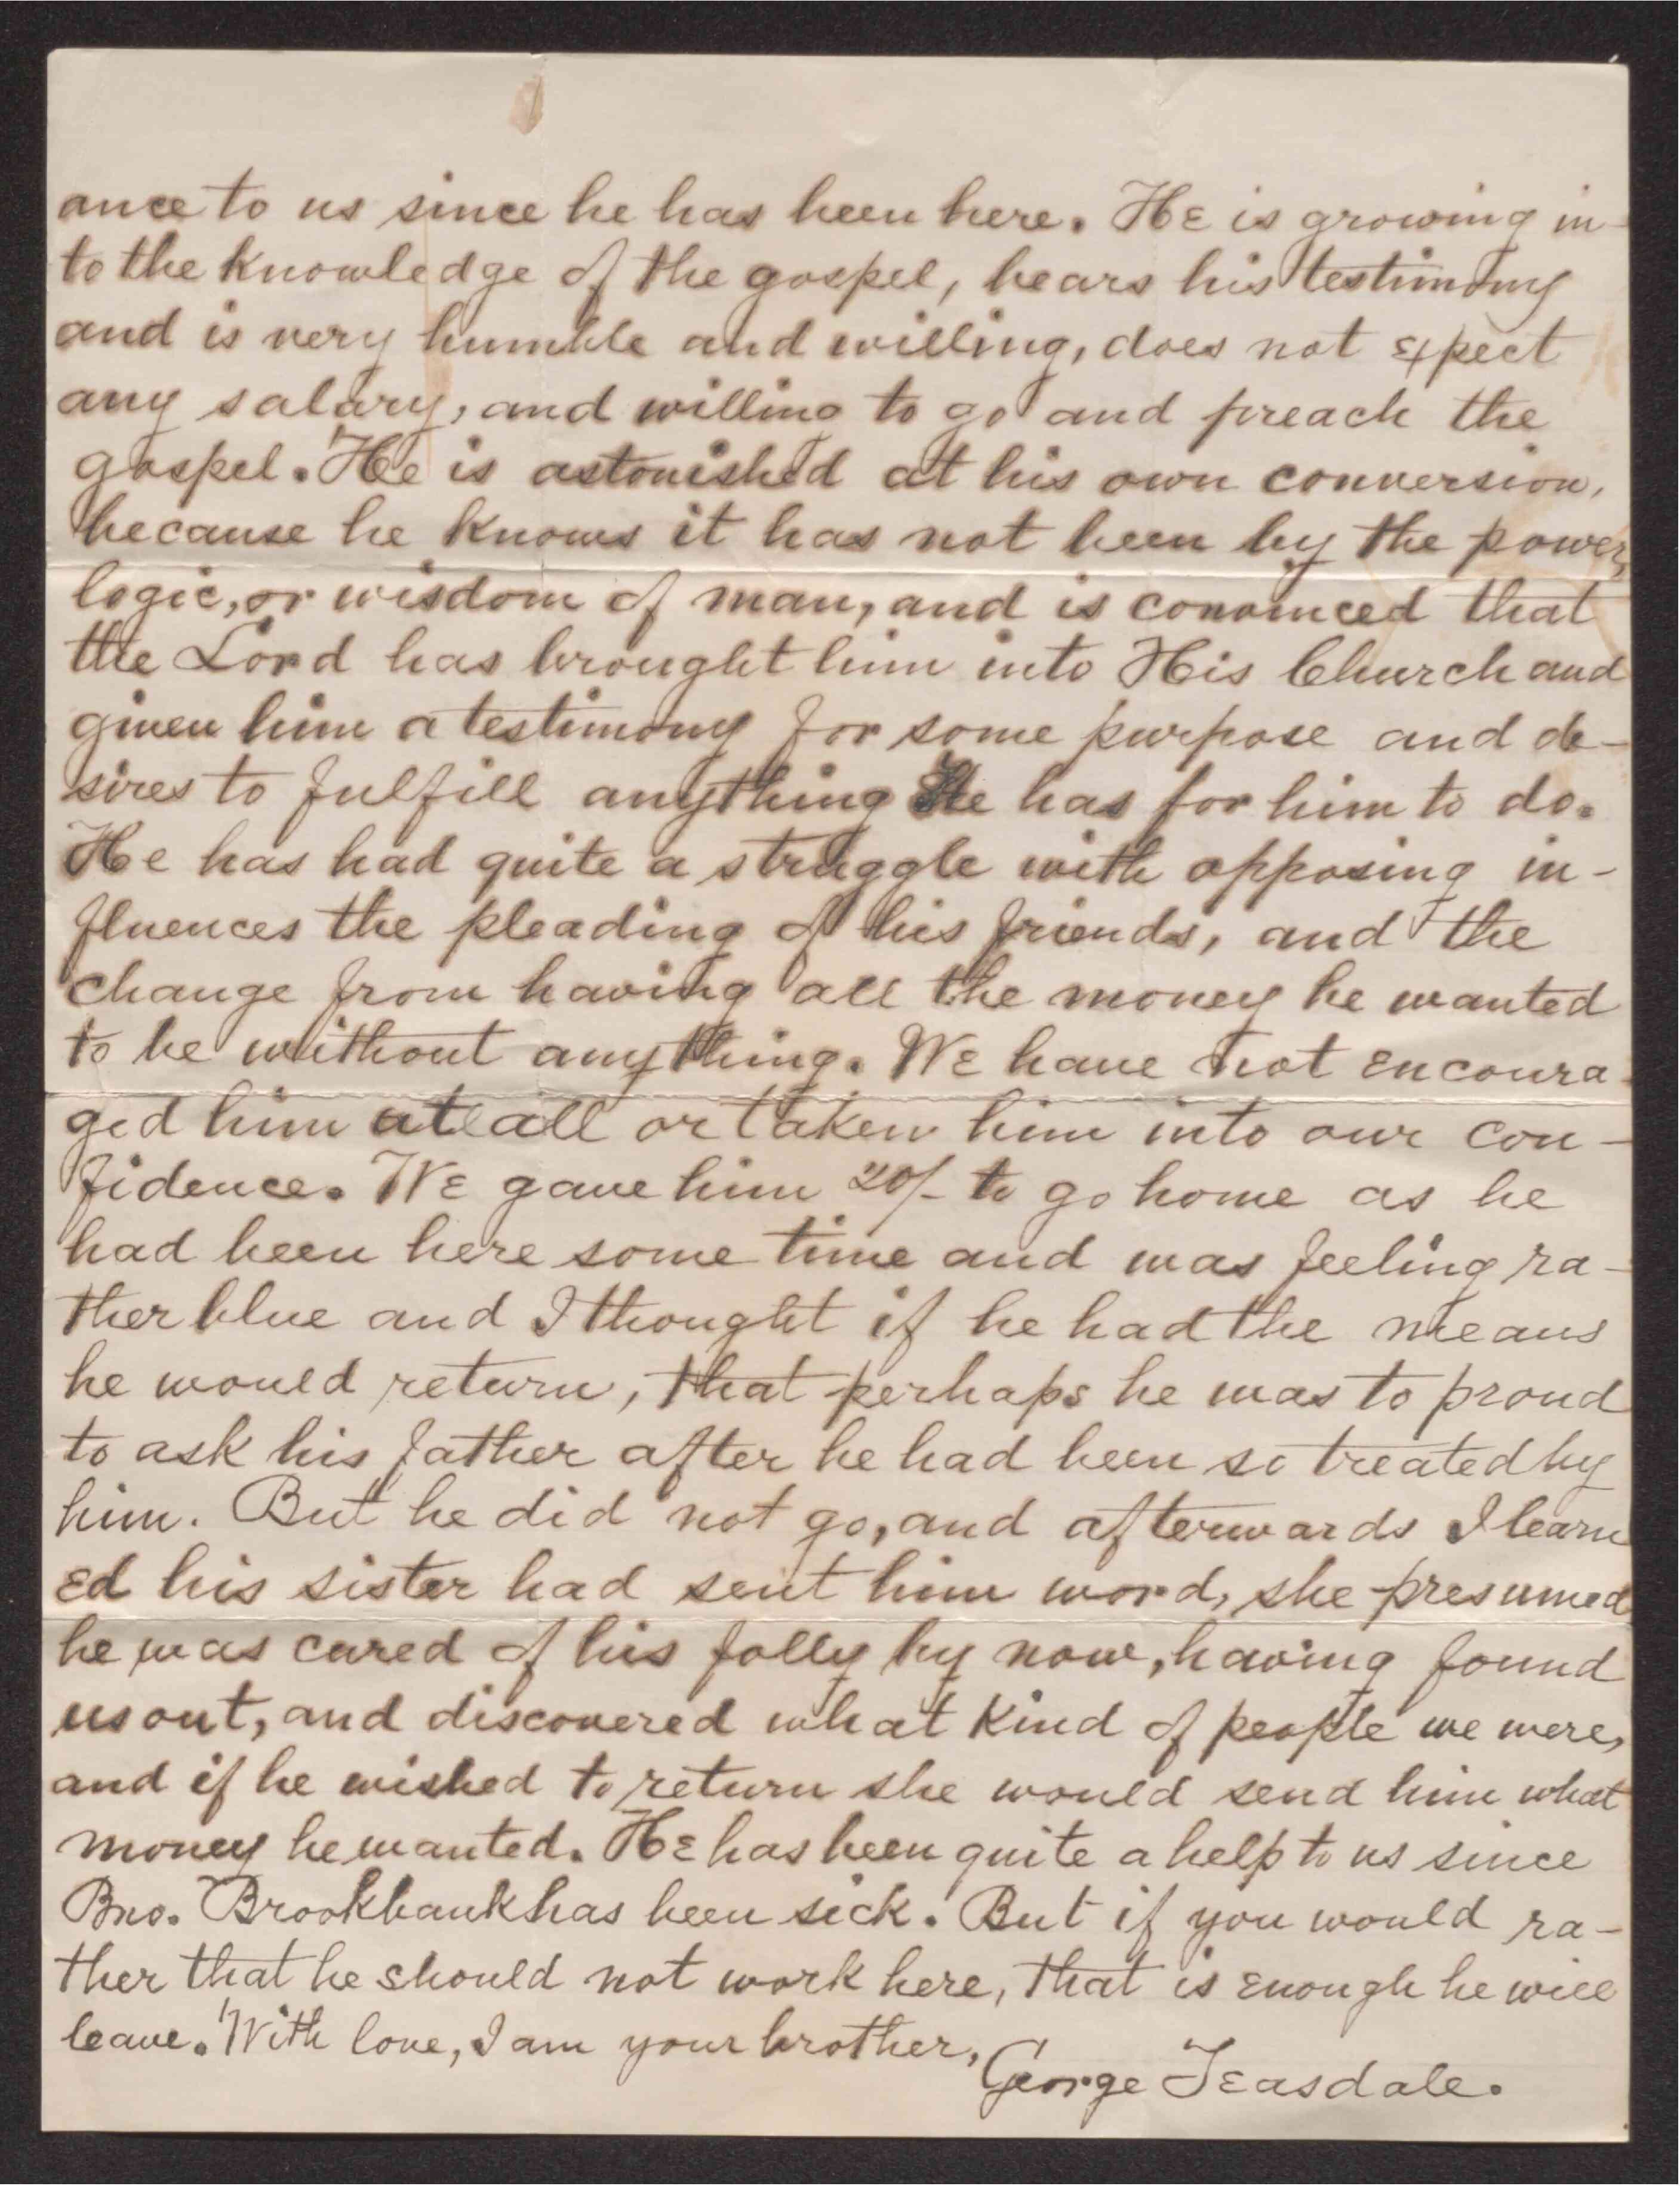 ance to us since he has been here. He is growing in-
to the knowledge of the gospel, bears his testimony
and is very humble and willing, does not expect
any salary, and willing to go and preach the
gospel. He is astonished at his own conversion,
because he knows it has not been by the power,
logic, or wisdom of man, and is convinced that
the Lord has brought him into His Church and
given him a testimony for some purpose and de-
sires to fulfill anything He has for him to do.
He has had quite a struggle with opposing in-
fluences the pleading of his friends, and the
change from having all the money he wanted
to be without anything. We have not encoura-
ged him at all or taken him into our con-
fidence. We gave him 20/- to go home as he
had been here some time and was feeling ra-
ther blue and I thought if he had the means
he would return, that perhaps he was to proud
to ask his father after he had been so treated by
him. But he did not go, and afterwards I learn
ed his sister had sent him word, she presumed
he was cured of his folly by now, having found
us out, and discovered what kind of people we were,
and if he wished to return she would send him what
money he wanted. He has been quite a help to us since
Bro. Brookbank has been sick. But if you would ra-
ther that he should not work here, that is enough he will
leave. With love, I am your brother,
George Teasdale.